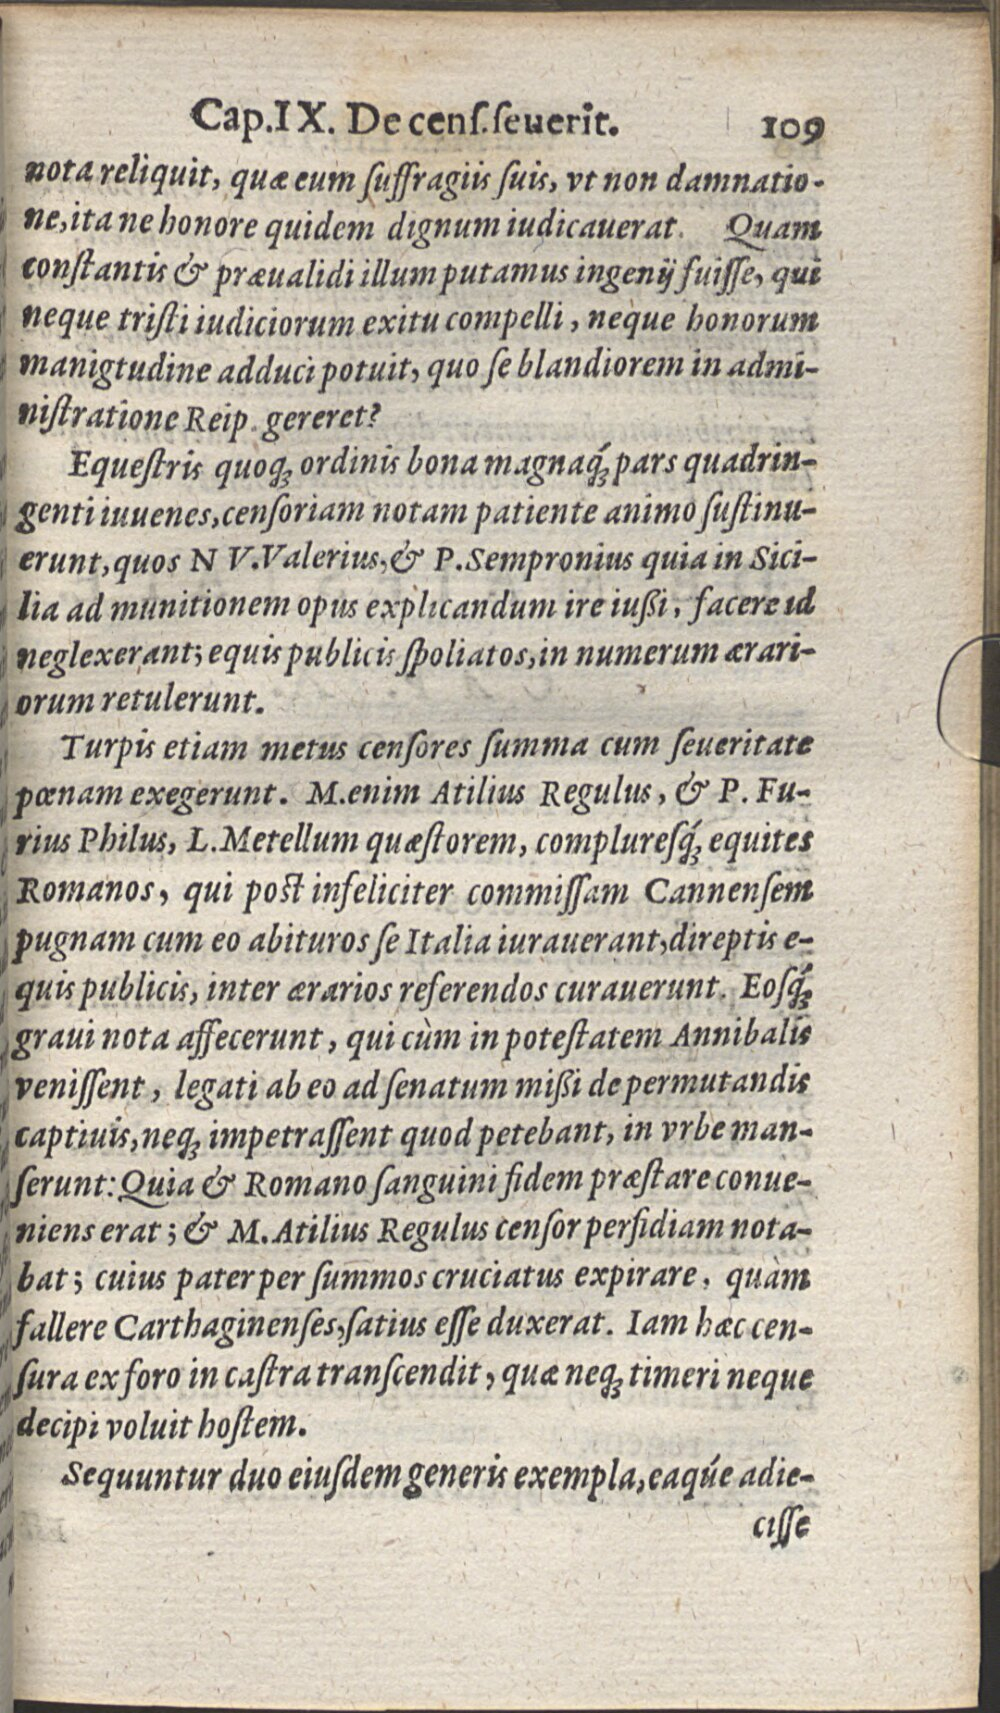 Cap.IX. De cenſ.ſeuerit. 109
nota reliquit, quæ eum ſuffragiis ſuis, vt non damnatio-
ne, ita ne honore quidem dignum iudicauerat. Quam
conſtantis & præualidi illum putamus ingenij fuiſſe, qui
neque triſti iudiciorum exitu compelli, neque honorum
manigtudine adduci potuit, quo ſe blandiorem in admi-
niſtratione Reip. gereret?
Equeſtris quoq; ordinis bona magnaq́; pars quadrin-
genti iuuenes, cenſoriam notam patiente animo ſuſtinu-
erunt, quos N V. Valerius, & P. Sempronius quia in Sici-
lia ad munitionem opus explicandum ire iußi, facere id
neglexerant; equis publicis ſpoliatos, in numerum ærari-
orum retulerunt.
Turpis etiam metus cenſores ſumma cum ſeueritate
pœnam exegerunt. M. enim Atilius Regulus, & P. Fu-
rius Philus, L. Metellum quæſtorem, complureſq́; equites
Romanos, qui poſt infeliciter commiſſam Cannenſem
pugnam cum eo abituros ſe Italia iurauerant, direptis e-
quis publicis, inter ærarios referendos curauerunt. Eoſq́;
graui nota affecerunt, qui cùm in poteſtatem Annibalis
veniſſent, legati ab eo ad ſenatum mißi de permutandis
captiuis, neq; impetraſſent quod petebant, in vrbe man-
ſerunt: Quia & Romano ſanguini fidem præſtare conue-
niens erat; & M. Atilius Regulus cenſor perfidiam nota-
bat; cuius pater per ſummos cruciatus expirare, quàm
fallere Carthaginenſes, ſatius eſſe duxerat. Iam hæc cen-
ſura ex foro in caſtra tranſcendit, quæ neq; timeri neque
decipi voluit hoſtem.
Sequuntur duo eiuſdem generis exempla, eaqúe adie-
ciſſe